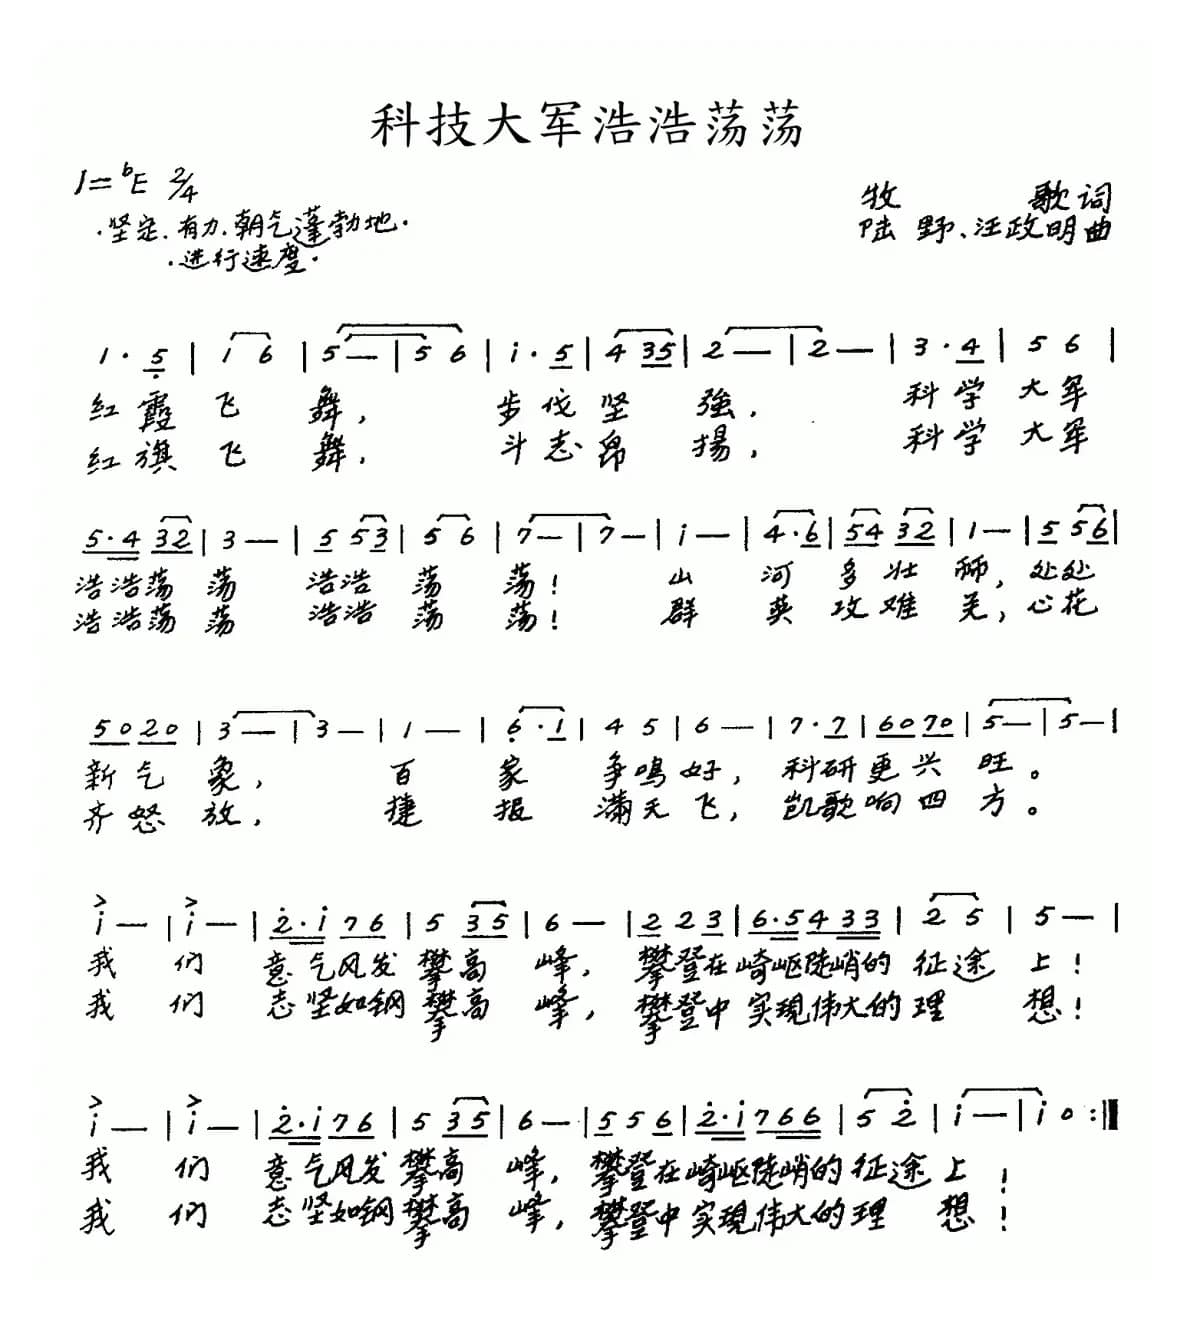 科技大军浩浩荡荡
1=♭E 2/4
·坚定、有力、朝气蓬勃地·
·进行速度·
牧 歌词
陆 野、汪政明曲
1·5 | i 6 | 5— | 5 6 | i·5 | 4 35 | 2— | 2— | 3·4 | 5 6 |
红霞飞 舞, 步伐坚 強. 科学 大军
红旗飞 舞. 斗志昂 揚, 科学 大军
5·4 32 | 3— | 5 53 | 5 6 | 7— | 7— | i— | 4·6 | 54 32 | 1— | 5 56 |
浩浩荡 荡 浩浩 荡 荡! 山 河 多 壮 丽, 处处
浩浩荡 荡 浩浩 荡 荡! 群 英 攻 难 关, 心花
50 20 | 3— | 3— | 1— | 6·1 | 4 5 | 6— | 7·7 | 60 70 | 5— | 5— |
新 气 象, 百 家 争鸣好, 科研更兴 旺。
齐 怒 放, 捷 报 满天飞, 凯歌响四 方。
i— | i— | 2·i 76 | 5 35 | 6— | 2 2 3 | 6·5 4 33 | 2 5 | 5— |
我 们 意气风发 攀高 峰, 攀登在崎岖陡峭的 征途 上!
我 们 志坚如钢 攀高 峰, 攀登中实現伟大的理 想!
i— | i— | 2·i 76 | 5 35 | 6— | 5 5 6 | 2·i 7 66 | 5 2 | i— | i 0 :‖
我 们 意气风发 攀高 峰, 攀登在崎岖陡峭的 征途上!
我 们 志坚如钢 攀高 峰, 攀登中实現伟大的理 想!